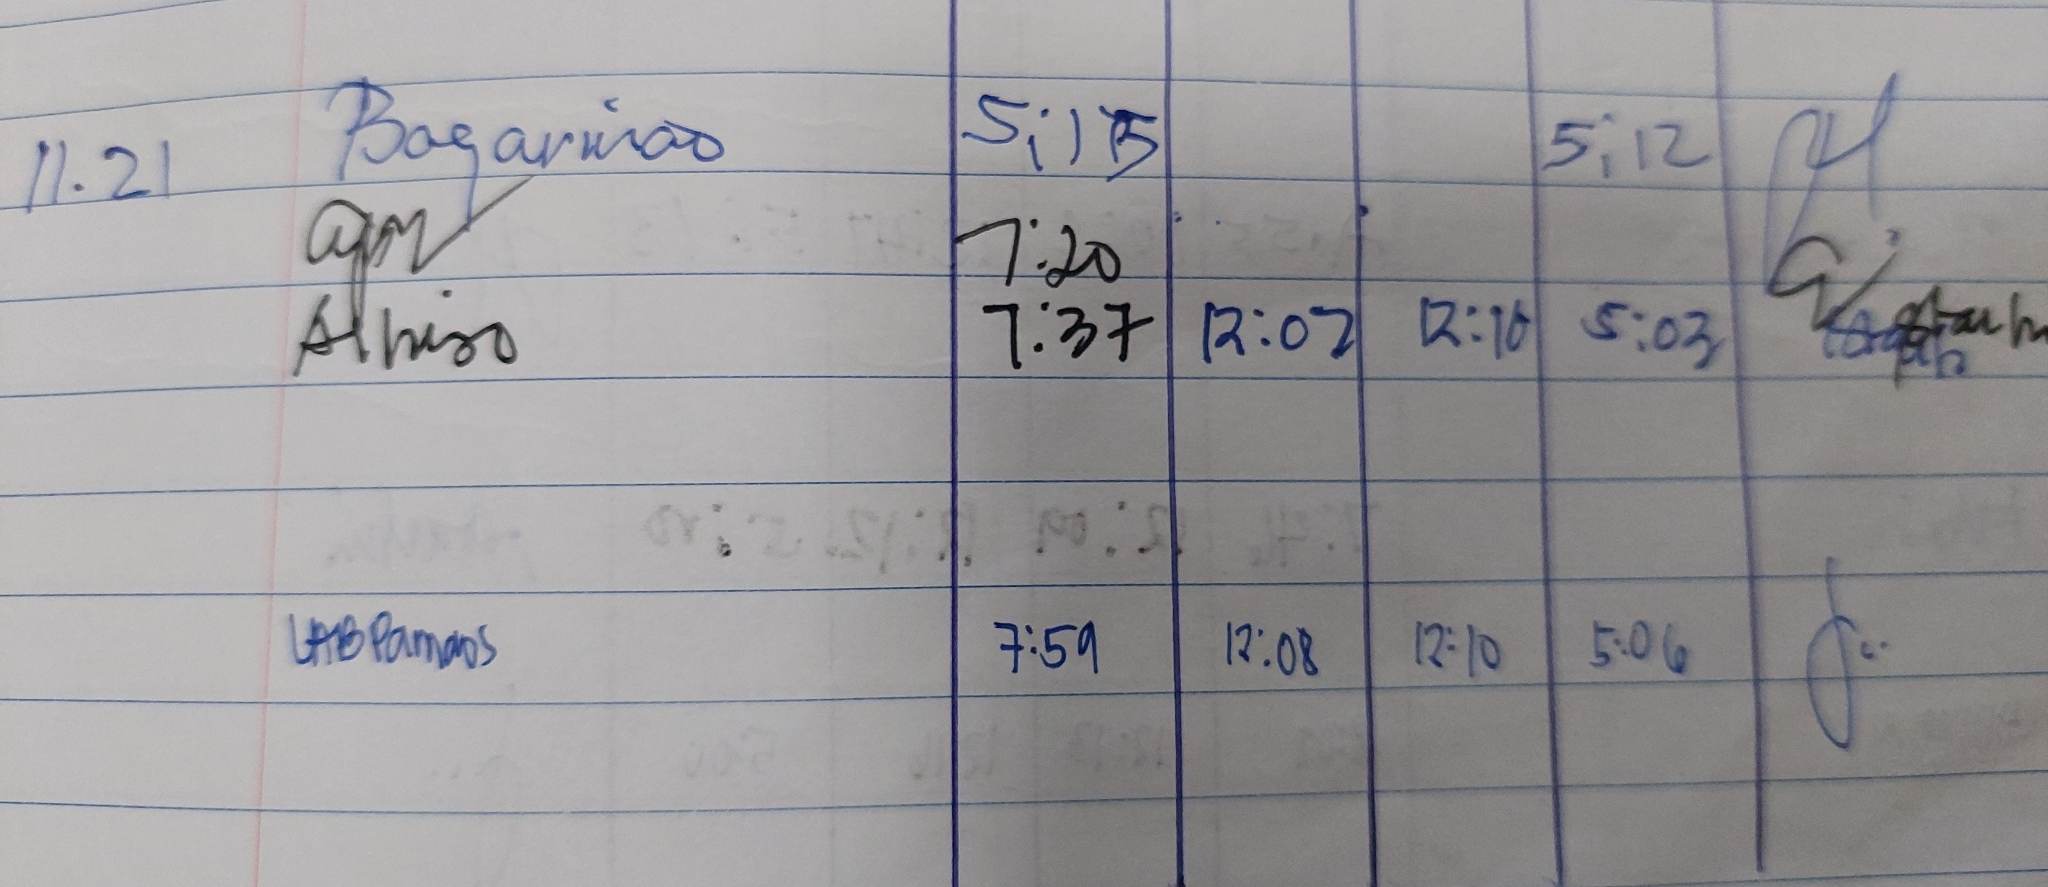 11.21 Bagarinao 5:15 5:12
7:20
Albiso 7:37 12:02 12:10 5:03
7:59 12:08 12:10 5:06